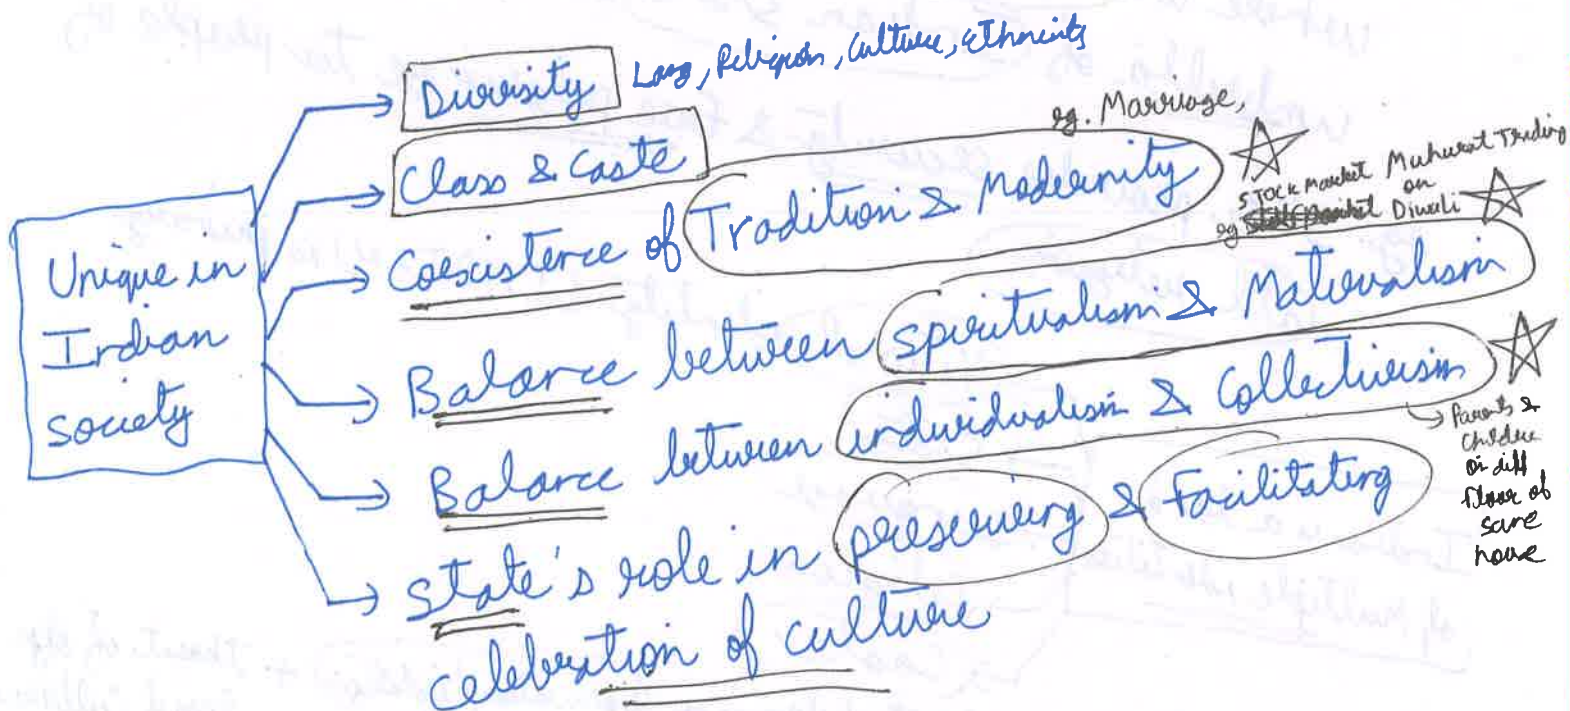 Unique in
Indian
society
Diversity
Lang, Religion, Culture, Ethnicity
Class & Caste
Coexistence of Tradition & Modernity
eg. Marriage,
STOCK Market Muhurat Trading
on
eg Diwali
Balance between spiritualism & Materialism
Balance between individualism & Collectivism
Parents &
children
on diff
floor of
same
house
State's role in preserving & Facilitating
celebration of culture